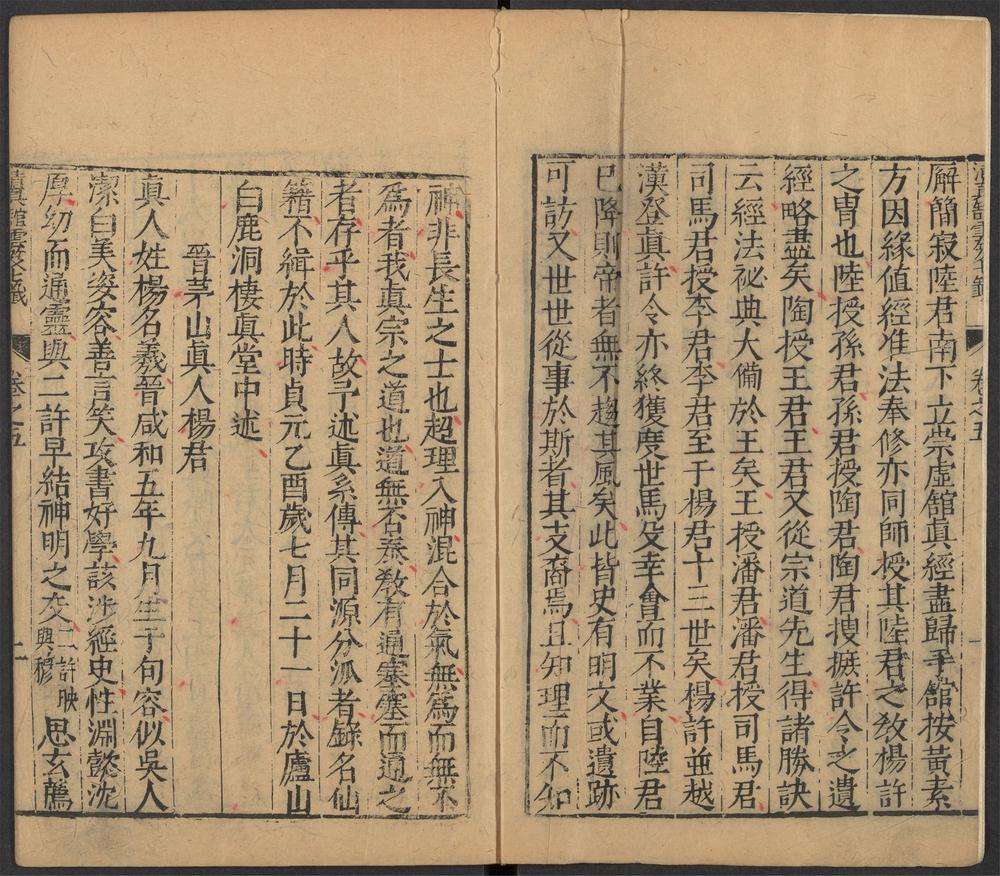 廨簡寂陸君南下立崇虛舘真經盡歸于舘按黃素
方因緣值經准法奉修亦同師授其陸君之教楊許
之胄也陸授孫君孫君授陶君陶君搜摭許令之遺
經略盡矣陶授王君王君又從宗道先生得諸勝訣
云經法祕典大備於王矣王授潘君潘君授司馬君
司馬君授李君李君至于楊君十三世矣楊許並越
漢登真許令亦終獲度世馬殳幸會而不業自陸君
已降則帝者無不趨其風矣此皆史有明文或遺跡
可訪又世世從事於斯者其支裔焉且知理而不知
神非長生之士也超理入神混合於氣無為而無不
為者我真宗之道也道無否泰教有通塞塞而通之
者存乎其人故予述真系傳其同源分派者錄名仙
籍不緝於此時貞元乙酉歲七月二十一日於廬山
白鹿洞棲真堂中述
晉茅山真人楊君
真人姓楊名羲晉咸和五年九月生于句容似吳人
潔白美姿容善言笑攻書好學該涉經史性淵懿沈
厚幼而通靈與二許早結神明之交二許映與穆思玄薦
卷之五
卷之五